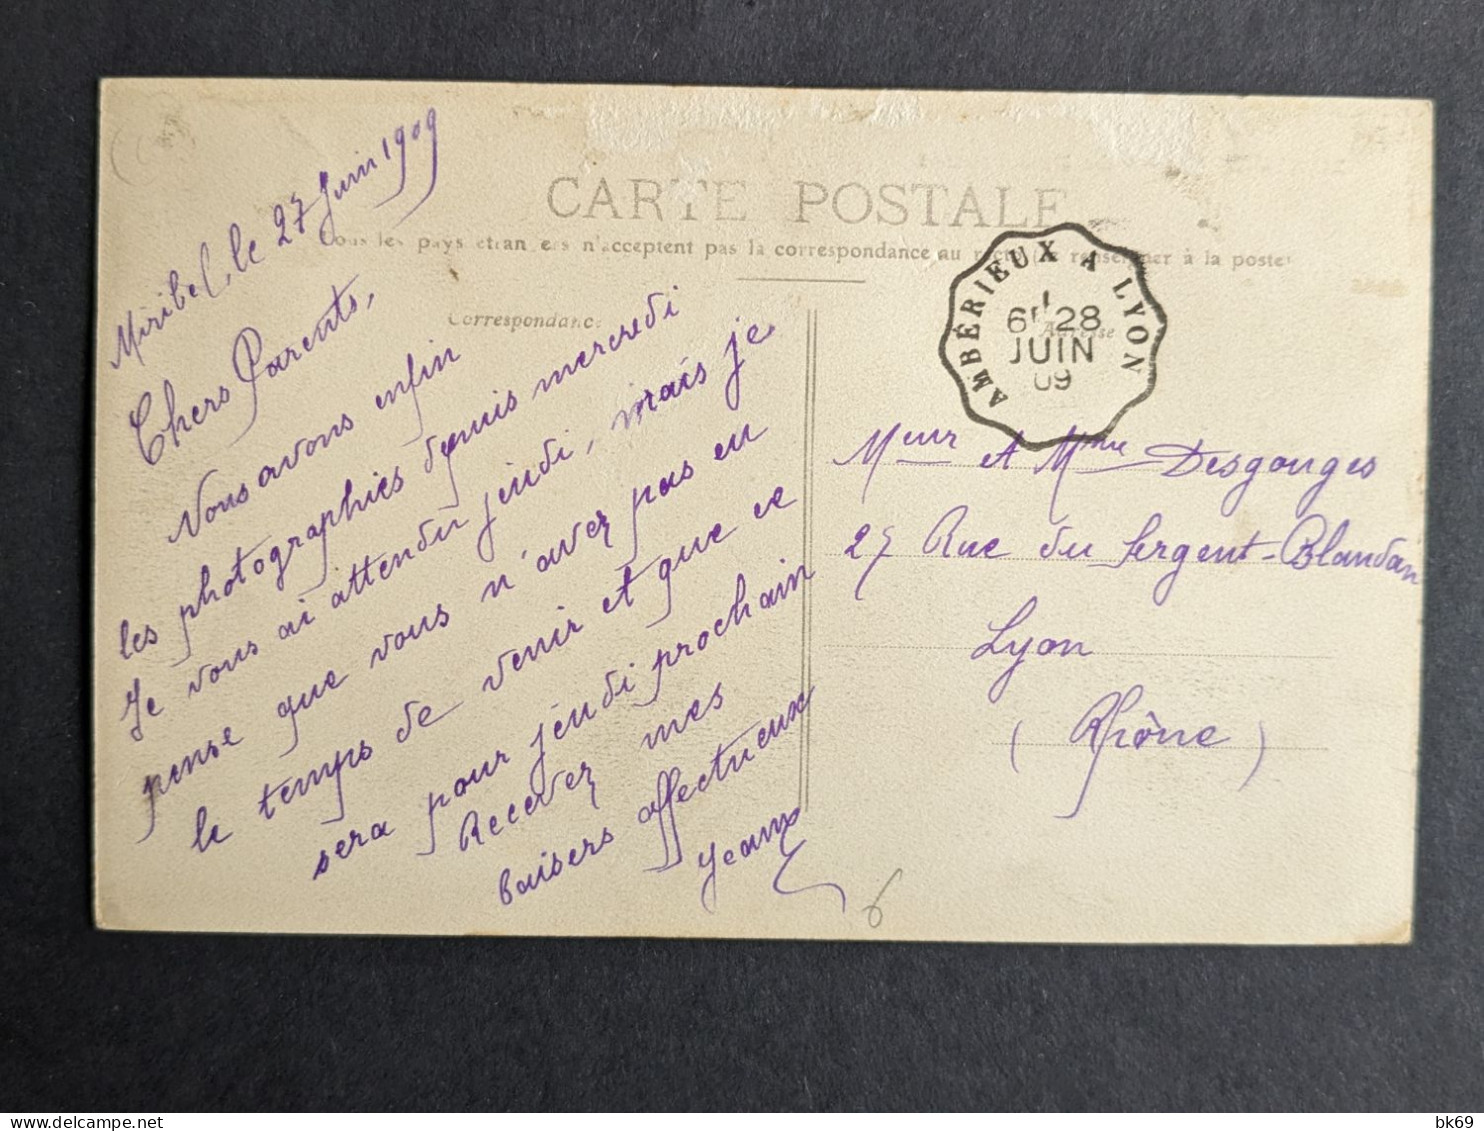 CARTE POSTALE
Tous les pays étrangers n'acceptent pas la correspondance au recto (se renseigner à la poste)
Correspondance
Adresse
AMBÉRIEUX A LYON
6E 28
JUIN
09
Miribel, le 27 Juin 1909
Chers Parents,
Nous avons enfin
les photographies depuis mercredi
Je vous ai attendu jeudi, mais je
pense que vous n'avez pas eu
le temps de venir et que ce
sera pour jeudi prochain
Recevez mes
baisers affectueux
Meur et Mme Desgouges
27 Rue du Sergent-Blandan
Lyon
(Rhône)
6
bk69